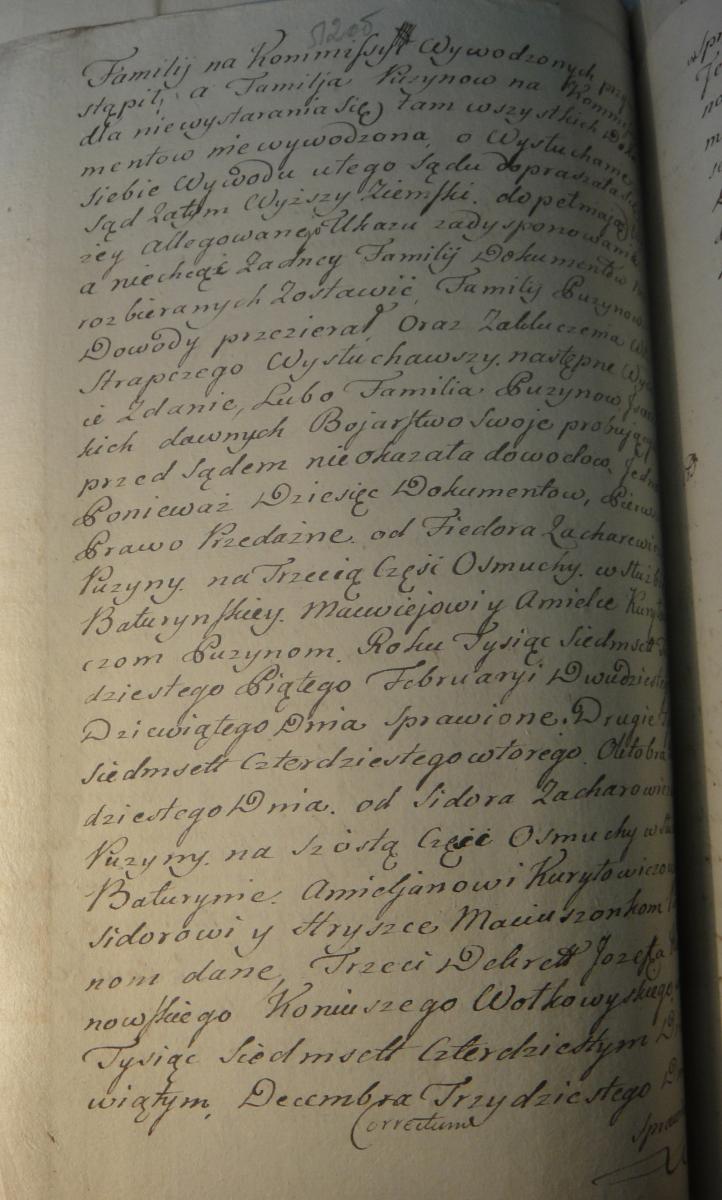 Familij na Kommissyi Wywodzonych
stąpił, a Familja Puzynow na
dla niewystarania się, tam wszystkich
mentow niewywodzona, o Wysłuchanie
siebie Wywodu utego Sądu dopraszała się
Sąd Zatym Wyższy Ziemski. dopełniając
zey Allegowanego Ukazu zadysponowanie
a niechcąc Zadney Familij Dokumentow
rozbieranych Zostawić, Familij Puzynow
Dowody przezierał, Oraz Zakluczenia
Strapczego Wysłuchawszy. następne
ie Zdanie, Lubo Familia Puzynow
kich dawnych Bojarstwo Swoje probujących
przed Sądem nieokazała dowodow,
Ponieważ Dziesięc Dokumentow,
Prawo Przedażne. od Fiedora Zacharewicza
Puzyny. na Trzecią Część Osmuchy. w
Baturynskiey. Macwiejowi y Amielce
czom Puzynom. Roku Tysiąc Siedmsett
dziestego Piątego Februaryi
Dziewiątego Dnia Sprawione. Drugie
Siedmsett Czterdziestego wtorego. Oktobra
dziestego Dnia. od Sidora Zacharowicza
Puzyny. na szóstą Część Osmuchy w
Baturynie. Amieljanowi Kuryłowiczowi
Sidorowi y Hryszce Maciuszonkom
nom dane, Trzeci Dekrett Jozefa
nowskiego Koniuszego Wołkowyskiego
Tysiąc Siedmsett Czterdziestym
wiątym, Decembra Trzydziestego
Correctum